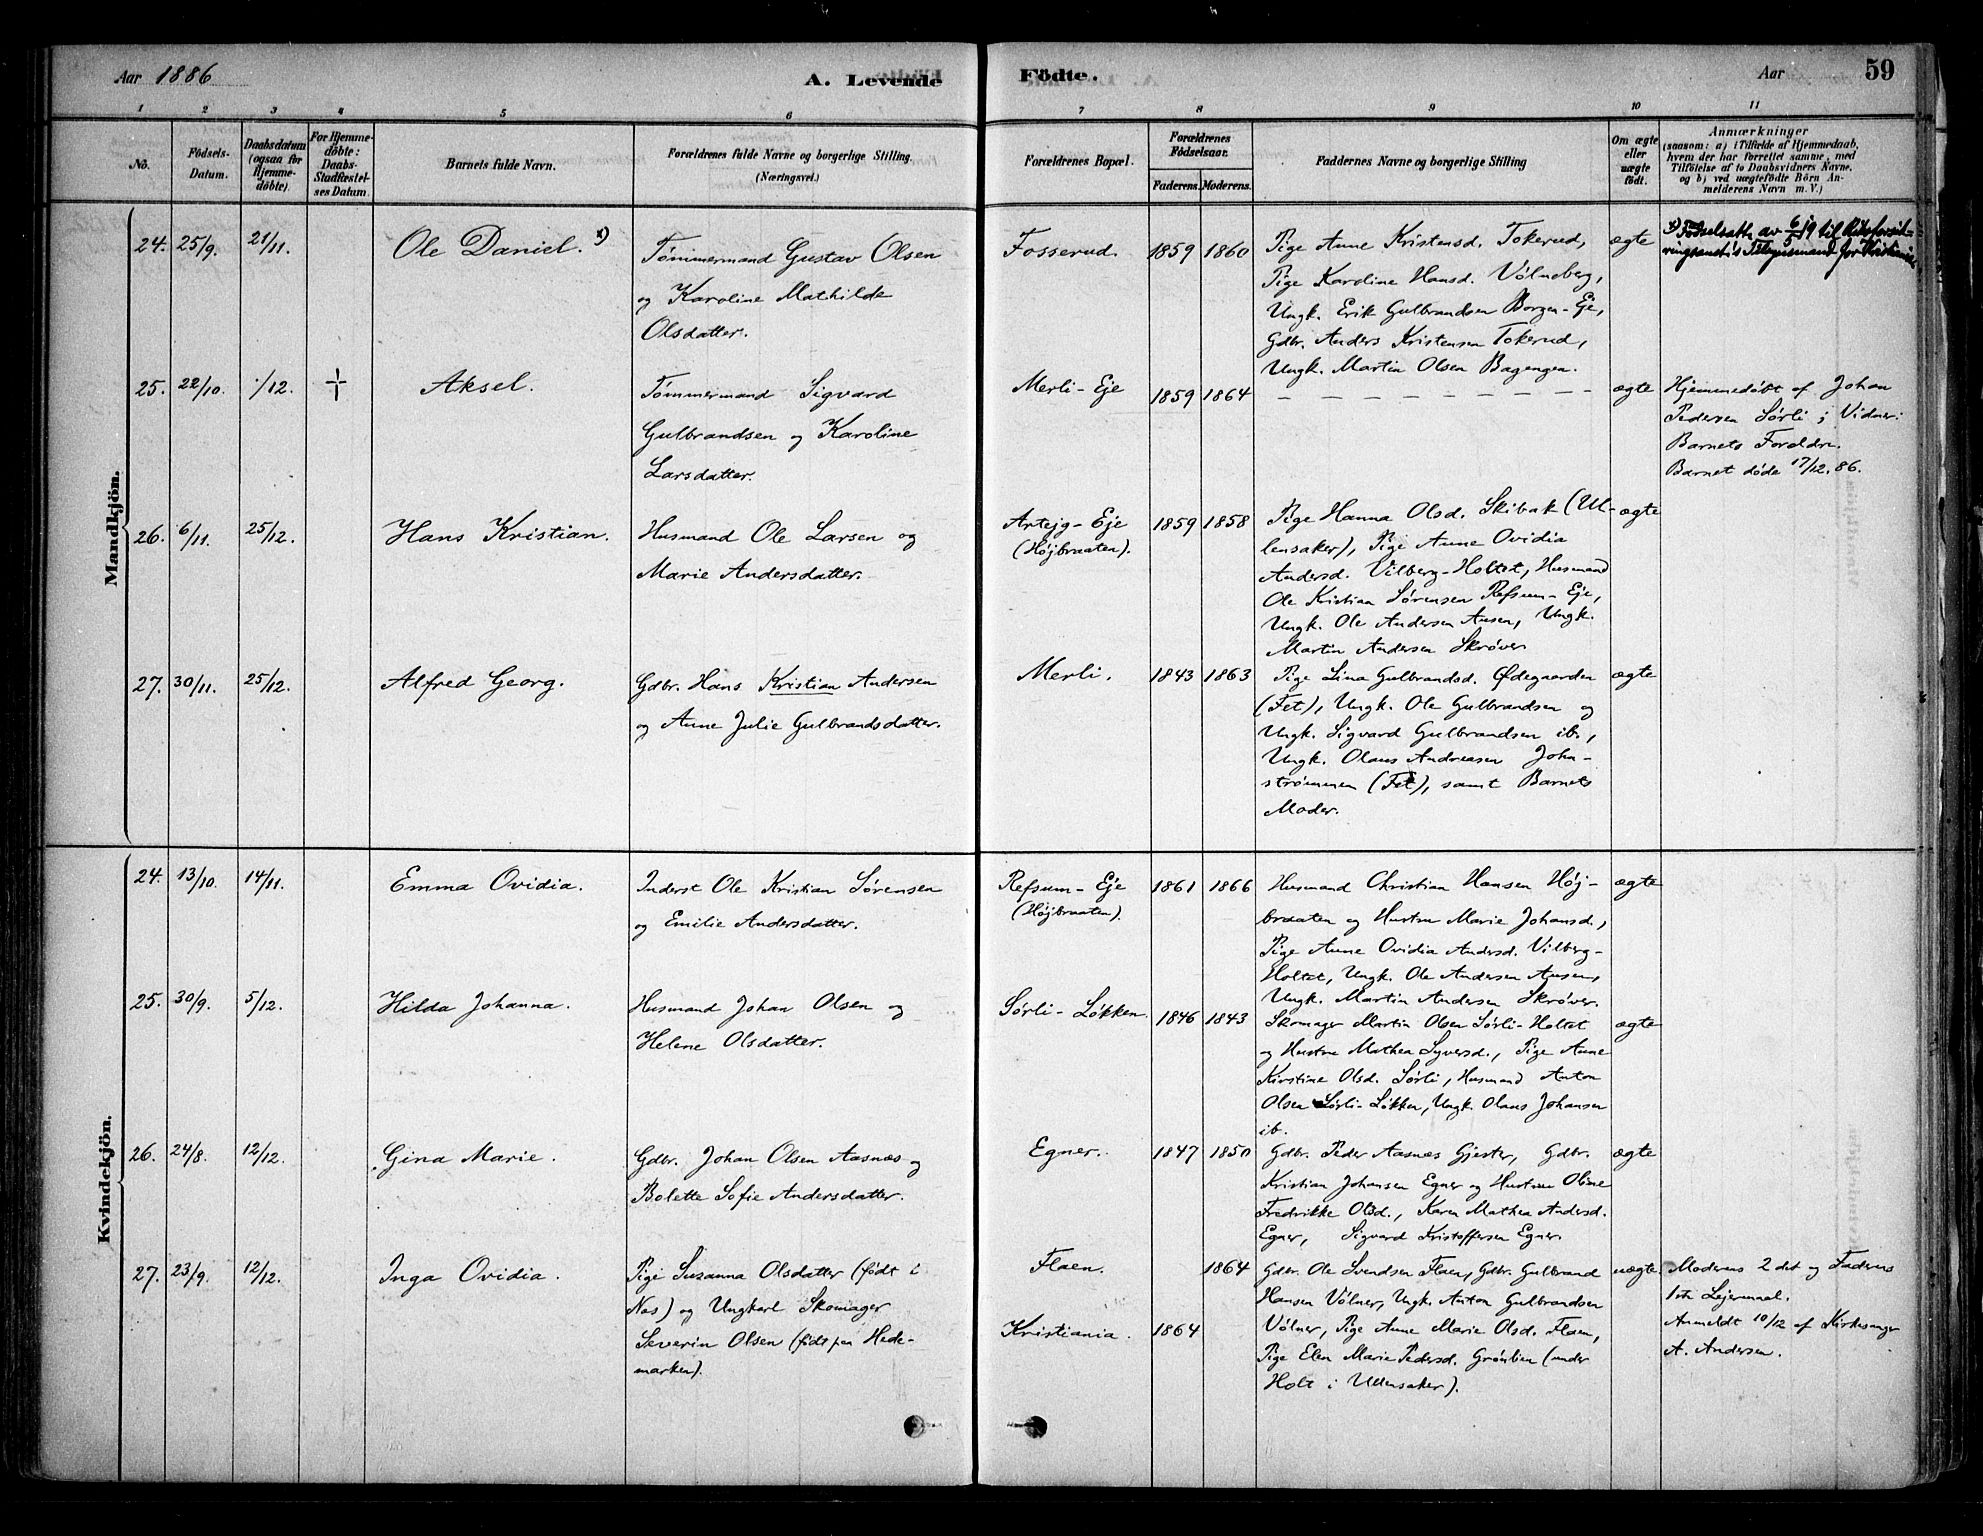 Aar 1886
A. Levende
Födte.
Aar
59
1 2 3 4 5 6 7 8 9 10 11
Nö.
Födsels-
Datum.
Daabsdatum
(ogsaa for
Hjemme-
döbte).
For Hjemme-
döbte:
Daabs-
Stadfæstel-
ses Datum.
Barnets fulde Navn.
Forældrenes fulde Navne og borgerlige Stilling.
(Næringsvei.)
Forældrenes Bopæl.
Forældrenes
Födselsaar.
Faderens. Moderens.
Faddernes Navne og borgerlige Stilling
Om ægte
eller
uægte
födt.
Anmærkninger
(saasom: a) i Tilfælde af Hjemmedaab,
hvem der har forrettet samme, med
Tilföielse af to Daabsvidners Navne,
og b) ved uægtefödte Börn An-
melderens Navn m. V.)
Mandkjön.
24. 25/9. 21/11. Ole Daniel. x)
Tømmermand Gustav Olsen
og Karoline Mathilde
Olsdatter.
Fosserud. 1859 1860
Pige Anne Kristensd. Tokerud,
Pige Karoline Hansd. Vølneberg,
Ungk. Erik Gulbrandsen Borgen-Eje,
Gdbr. Anders Kristensen Tokerud,
Ungk. Martin Olsen Bagengen.
ægte
x) Fødselsatt. av 6/5 19 til
for Kristiania
25. 22/10. 1/12. + Aksel.
Tømmermand Sigvard
Gulbrandsen og Karoline
Larsdatter.
Merli-Eje 1859 1864
— — — — — — — —
ægte
Hjemmedøbt af Johan
Pedersen Sørli; Vidner:
Barnets Forældre.
Barnet døde 17/12. 86.
26. 6/11. 25/12. Hans Kristian.
Husmand Ole Larsen og
Marie Andersdatter.
Artejg-Eje
(Højbraaten).
1859 1858
Pige Hanna Olsd. Skibak (Ul-
lensaker), Pige Anne Ovidia
Andersd. Vilberg-Holtet, Husmand
Ole Kristian Sørensen Refsum-Eje,
Ungk. Ole Andersen Ausen, Ungk.
Martin Andersen Skrøver
ægte
27. 30/11. 25/12. Alfred Georg.
Gdbr. Hans Kristian Andersen
og Anne Julie Gulbrandsdatter.
Merli. 1843 1863
Pige Lina Gulbrandsd. Ødegaarden
(Fet), Ungk. Ole Gulbrandsen og
Ungk. Sigvard Gulbrandsen ib.,
Ungk. Olaus Andreasen Joha-
strømmen (Fet), samt Barnets
Moder.
ægte
Kvindekjön.
24. 13/10. 14/11. Emma Ovidia.
Inderst Ole Kristian Sørensen
og Emilie Andersdatter.
Refsum-Eje
(Højbraaten).
1861 1866
Husmand Christian Hansen Høj-
braaten og Hustru Marie Johansd.,
Pige Anne Ovidia Andersd. Vilberg-
Holtet, Ungk. Ole Andersen Ausen,
Ungk. Martin Andersen Skrøver.
ægte
25. 30/9. 5/12. Hilda Johanna.
Husmand Johan Olsen og
Helene Olsdatter.
Sørli-Løkken. 1846 1843
Skomager Martin Olsen Sørli-Holtet
og Hustru Mathea Syversd., Pige Anne
Kirstine Olsd. Sørli, Husmand Anton
Olsen Sørli-Løkken, Ungk. Olaus Johansen
ib.
ægte
26. 24/8. 12/12. Gina Marie.
Gdbr. Johan Olsen Aasnæs og
Bolette Sofie Andersdatter.
Egner. 1847 1850
Gdbr. Peder Aasnæs Gjester, Gdbr.
Kristian Johansen Egner og Hustru Oline
Fredrikke Olsd., Karen Mathea Andersd.
Egner, Sigvard Kristoffersen Egner.
ægte
27. 23/9. 12/12. Inga Ovidia.
Pige Suzanna Olsdatter (født i
Nas) og Ungkarl Skomager
Severin Olsen (født paa Hede-
marken).
Flaen. 1864
Kristiania. 1864
Gdbr. Ole Svendsen Flaen, Gdbr. Gulbrand
Hansen Vølner, Ungk. Anton Gulbrandsen
Vølner, Pige Anne Marie Olsd. Flaen,
Pige Elen Marie Pedersd. Grønlien (under
Holt i Ullensaker).
uægte.
Moderens 2 det og Faderens
1ste Lejermaal.
Anmeldt 10/12 af Kirkesanger
A. Andersen.